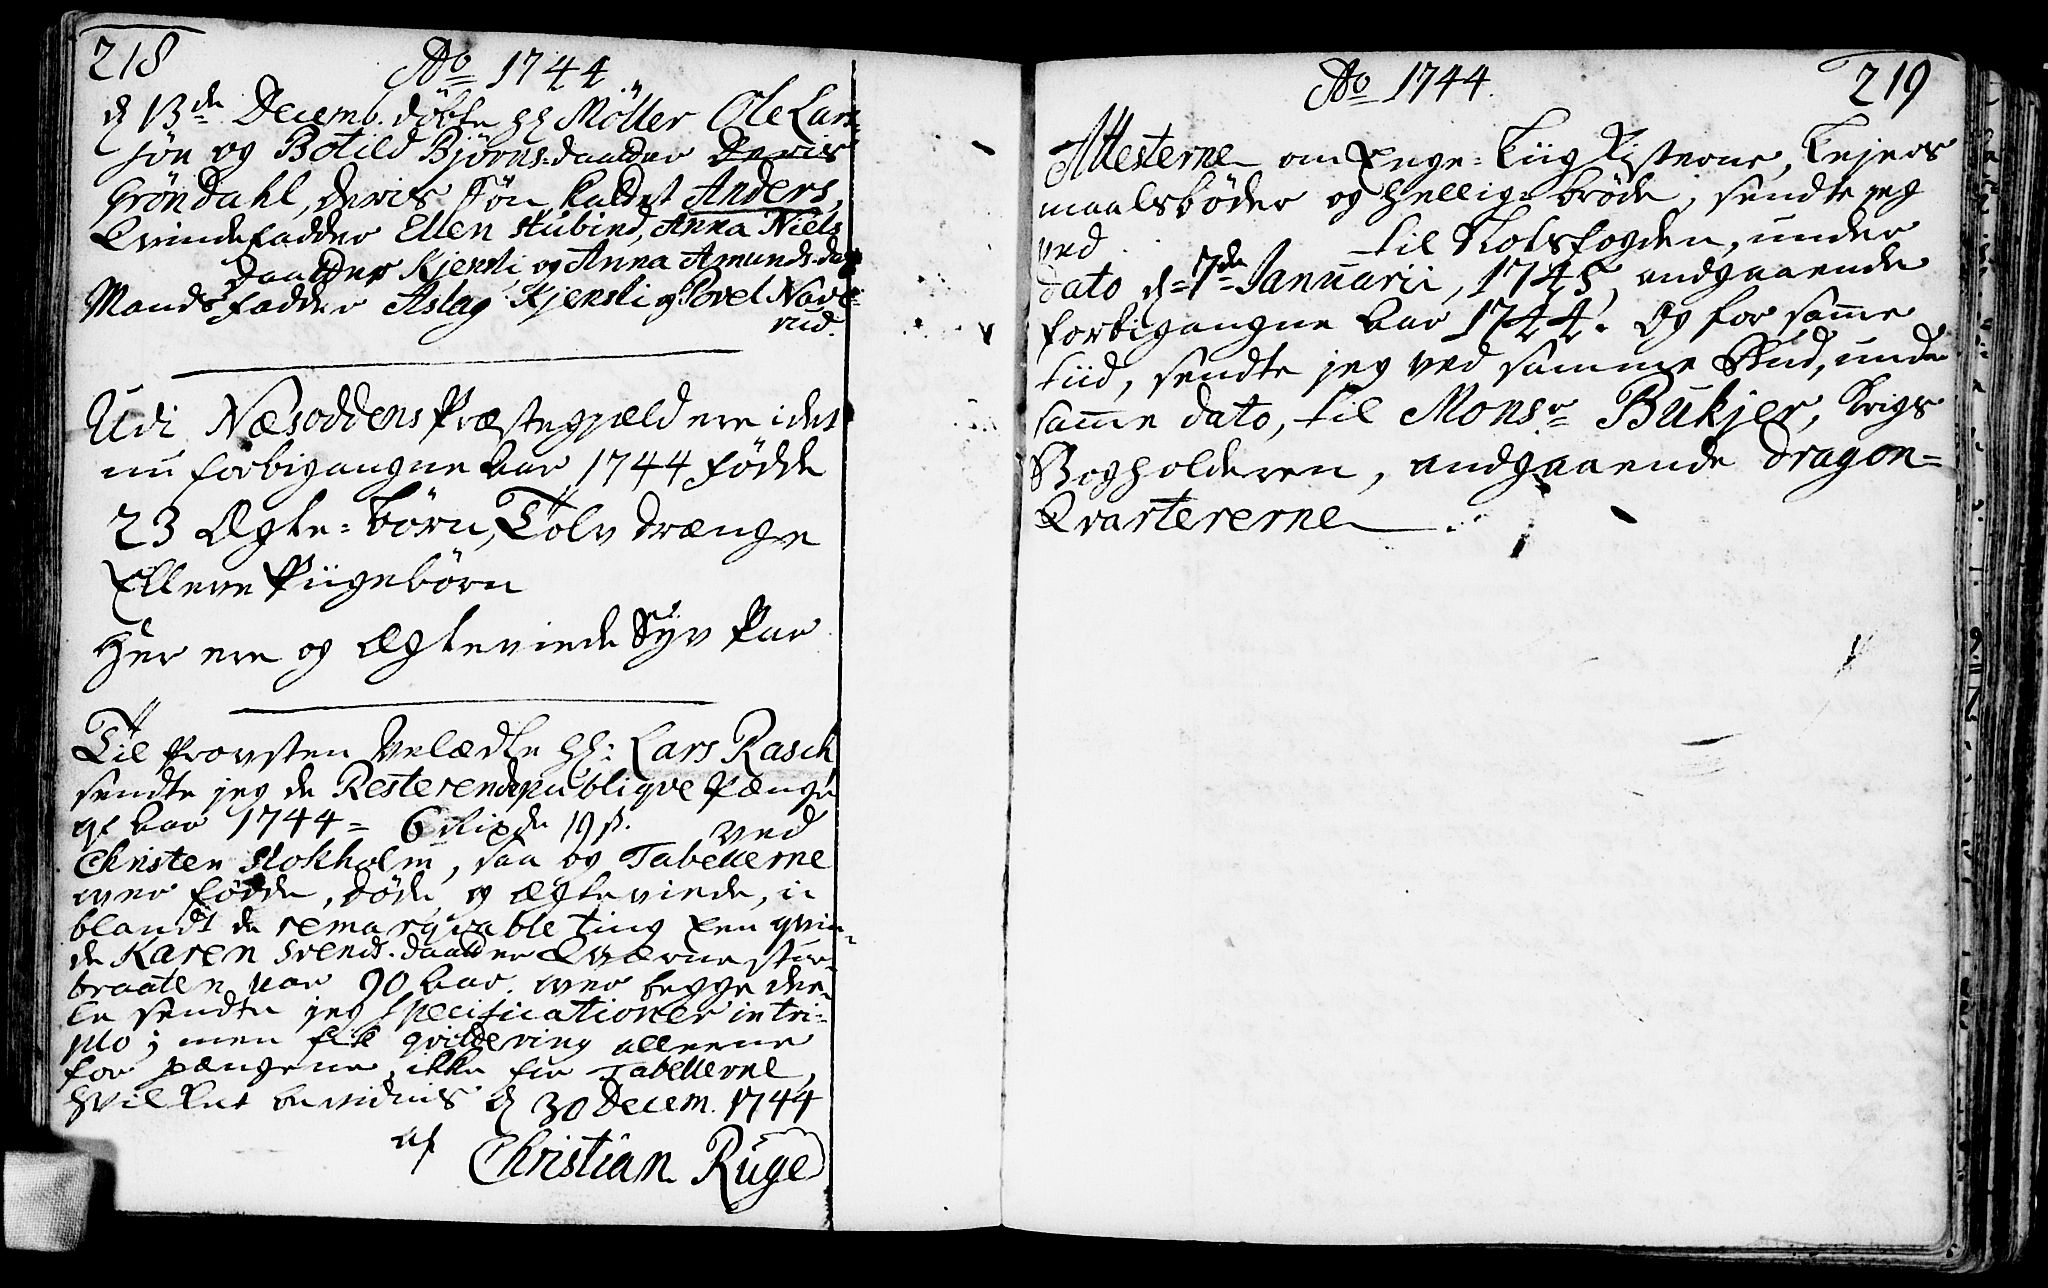 218
Ao 1744
d 13de Decemb. döbte hh Möller Ole Lars=
søn og Botild Bjørns-daatter Deris
Gröndahl, deris Søn kaldet Anders,
Qvindefaddr Ellen Skubind, Anna Niels
daatter Kjensli og Anna Amunds-da
Mandsfaddr Aslag Kjensli og Povel Nave=
rud.
Udi Næsoddens Præstegjæld ere i det
nu forbigangne Aar 1744 fødde
23 Ægte=børn, Tolv Drænge
Elleve Piigebörn
Her ere og Ægteviede Syv Par
Til Provsten Velædle hh: Lars Rasch,
sendte jeg de Resterende publiqve Pænge
af Aar 1744= 6 Rixdr 19 s. ved
Christen Stokholm, saa og Tabellerne
over födde, döde og ægteviede, i
blandt de remarqvable ting Een qvin=
de Karen Svends-daatter Qværnestu
braaten var 90 Aar. over begge dee=
le sendte jeg Specificationer in tri=
plo; men fik qvittering alleene
for pængene, ikke for Tabellerne,
hvilket bevidnis d 30 Decem. 1744
af Christian Ruge
Ao 1744.
219
Attesterne om Enge= Liig Kisterne, Lejers
maalsbøder og Hellig=brøde, sendte jeg
ved til Kolsfogden, under
dato d= 7de Januarii, 1745, andgaaende
forbigangne Aar 1744. Og for samme
tiid, sendte jeg ved samme Bud, under
samme dato, til Monsr Bukjer, Krigs
Bogholderen, andgaaende Dragon=
Qvartererne